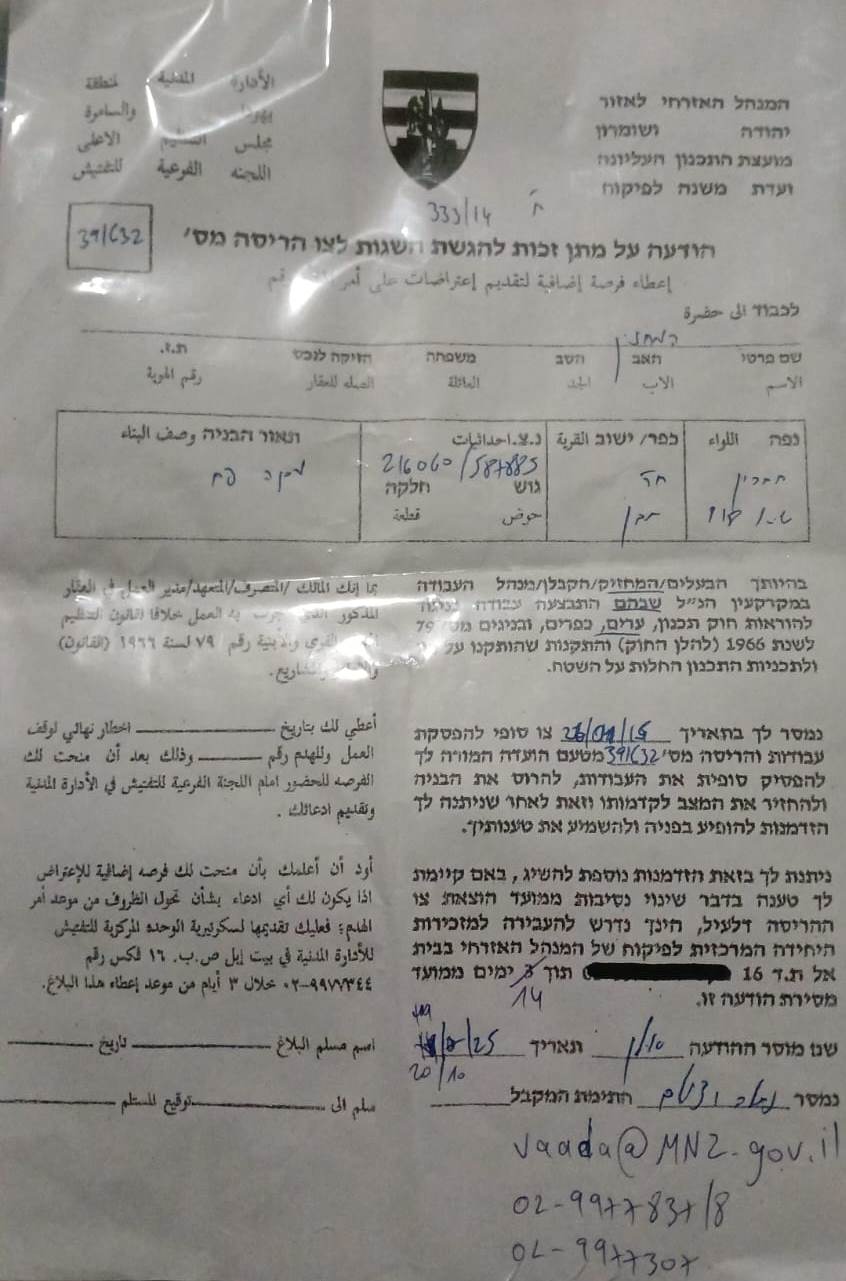 המנהל האזרחי לאזור
יהודה ושומרון
מועצת התכנון העליונה
ועדת משנה לפיקוח
الأدارة المدنية لمنطقة
يهودا والسامرة
مجلس التنظيم الاعلى
اللجنه الفرعية للتفتيش
333/14
הודעה על מתן זכות להגשת השגות לצו הריסה מס'
39/632
إعطاء فرصة إضافية لتقديم إعتراضات على أمر رقم
לכבוד الى حضرة
המחזיק
שם פרטי האב הסב משפחה הזיקה לנכס ת.ז.
الاسم الاب الجد العائلة الصله للعقار رقم الهوية
נפה اللواء כפר/ ישוב القرية נ.צ.احداثيات תאור הבניה وصف البناء
216060/587885
חברון
גוש חלקה
حوض قطعة
בהיותך הבעלים/המחזיק/הקבלן/מנהל העבודה
במקרקעין הנ"ל שבהם התבצעה עבודה בניגוד
להוראות חוק תכנון, ערים, כפרים, ובניינים מס' 79
לשנת 1966 (להלן החוק) והתקנות שהותקנו
ולתכניות התכנון החלות על השטח.
بما إنك المالك /المتصرف/المتعهد/مدير العمل في العقار
المذكور الذي به العمل خلافا لقانون التنظيم
القرى والأبنية رقم ٧٩ لسنة ١٩٦٦ (القانون)
والمشاريع.
נמסר לך בתאריך צו סופי להפסקת
עבודות והריסה מס' 39/632 מטעם הועדה המורה לך
להפסיק סופית את העבודות, להרוס את הבניה
ולהחזיר את המצב לקדמותו וזאת לאחר שניתנה לך
הזדמנות להופיע בפניה ולהשמיע את טענותיך.
أعطي لك بتاريخ اخطار نهائي لوقف
العمل وللهدم رقم وذلك بعد أن منحت لك
الفرصه للحضور امام اللجنة الفرعية للتفتيش في الأدارة المدنية
وتقديم ادعائك .
ניתנת לך בזאת הזדמנות נוספת להשיג, באם קיימת
לך טענה בדבר שינוי נסיבות ממועד הוצאת צו
ההריסה דלעיל, הינך נדרש להעבירה למזכירות
היחידה המרכזית לפיקוח של המנהל האזרחי בבית
אל ת.ד 16 תוך 3 ימים ממועד
14
מסירת הודעה זו.
أود أن أعلمك بأن منحت لك فرصه إضافية للإعتراض
اذا يكون لك أي ادعاء بشأن تحول الظروف من موعد أمر
الهدم؛ فعليك تقديمها لسكرتيرية الوحده المركزية للتفتيش
للأدارة المدنية في بيت إيل ص.ب. ١٦ فكس رقم
٠٢-٩٩٧٧٣٤٤ خلال ٣ أيام من موعد إعطاء هذا البلاغ.
שם מוסר ההודעה ותאריך
20/10
נמסר חתימת המקבל
اسم مسلم البلاغ تاريخ
سلم الى توقيع المستلم
vaada@MNZ-gov.il
02-9977837/8
02-9977307